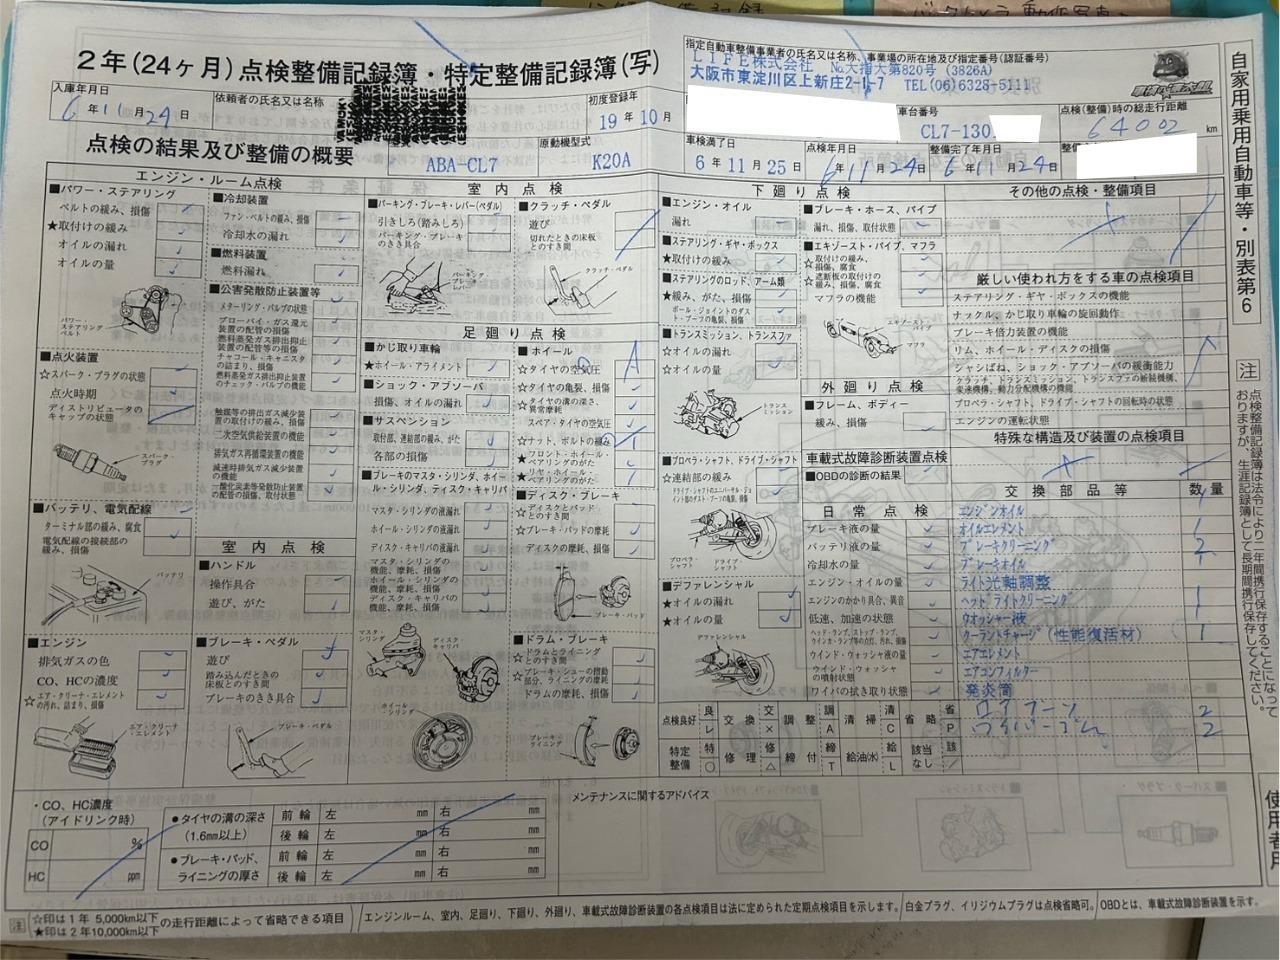 2年(24ヶ月)点検整備記録簿・特定整備記録簿(写)
指定自動車整備事業者の氏名又は名称、事業場の所在地及び指定番号(認証番号)
LIFE株式会社 No大指大第820号 (3826A)
大阪市東淀川区上新庄2-1-7 TEL(06)6328-5111
自家用乗用自動車等・別表第6
入庫年月日
6年11月24日
依頼者の氏名又は名称
初度登録年
19年10月
車台番号
CL7-130
点検(整備)時の総走行距離
64002 km
ABA-CL7
原動機型式
K20A
車検満了日
6年11月25日
点検年月日
6年11月24日
整備完了年月日
6年11月24日
点検の結果及び整備の概要
エンジン・ルーム点検
■パワー・ステアリング
ベルトの緩み、損傷
★取付けの緩み
オイルの漏れ
オイルの量
パワー・ステアリング
ベルト
■点火装置
☆スパーク・プラグの状態
点火時期
ディストリビュータのキャップの状態
スパーク・プラグ
■バッテリ、電気配線
ターミナル部の緩み、腐食
電気配線の接続部の緩み、損傷
バッテリ
■エンジン
排気ガスの色
CO、HCの濃度
☆エア・クリーナ・エレメントの汚れ、詰まり、損傷
エア・クリーナエレメント
■冷却装置
ファン・ベルトの緩み、損傷
冷却水の漏れ
■燃料装置
燃料漏れ
■公害発散防止装置等
メターリング・バルブの状態
ブローバイ・ガス還元装置の配管の損傷
燃料蒸発ガス排出抑止装置の配管等の損傷
チャコール・キャニスタの詰まり、損傷
燃料蒸発ガス排出抑止装置のチェック・バルブの機能
触媒等の排出ガス減少装置の取付けの緩み、損傷
二次空気供給装置の機能
排気ガス再循環装置の機能
減速時排気ガス減少装置の機能
一酸化炭素等発散防止装置の配管の損傷、取付状態
室内点検
■ハンドル
操作具合
遊び、がた
■ブレーキ・ペダル
遊び
踏み込んだときの床板とのすき間
ブレーキのきき具合
ブレーキ・ペダル
室内点検
■パーキング・ブレーキ・レバー(ペダル)
引きしろ(踏みしろ)
パーキング・ブレーキのきき具合
■クラッチ・ペダル
遊び
切れたときの床板とのすき間
クラッチ・ペダル
足廻り点検
■かじ取り車輪
★ホイール・アライメント
■ショック・アブソーバ
損傷、オイルの漏れ
■サスペンション
取付部、連結部の緩み、がた
各部の損傷
■ブレーキのマスタ・シリンダ、ホイール・シリンダ、ディスク・キャリパ
マスタ・シリンダの液漏れ
ホイール・シリンダの液漏れ
ディスク・キャリパの液漏れ
マスタ・シリンダの機能、摩耗、損傷
ホイール・シリンダの機能、摩耗、損傷
ディスク・キャリパの機能、摩耗、損傷
マスタ・シリンダ
ディスク・キャリパ
ホイール・シリンダ
■ホイール
☆タイヤの空気圧
☆タイヤの亀裂、損傷
☆タイヤの溝の深さ、異常摩耗
スペア・タイヤの空気圧
☆ナット、ボルトの緩み
★フロント・ホイール・ベアリングのがた
★リヤ・ホイール・ベアリングのがた
■ディスク・ブレーキ
☆ディスクとパッドとのすき間
☆ブレーキ・パッドの摩耗
ディスクの摩耗、損傷
ブレーキ・パッド
■ドラム・ブレーキ
☆ドラムとライニングとのすき間
☆ブレーキ・シューの摺動部分、ライニングの摩耗
ドラムの摩耗、損傷
ブレーキ・ライニング
下廻り点検
■エンジン・オイル
漏れ
■ステアリング・ギヤ・ボックス
★取付けの緩み
■ステアリングのロッド、アーム類
★緩み、がた、損傷
ボール・ジョイントのダスト・ブーツの亀裂、損傷
■トランスミッション、トランスファ
☆オイルの漏れ
☆オイルの量
トランスミッション
■プロペラ・シャフト、ドライブ・シャフト
☆連結部の緩み
ドライブ・シャフトのユニバーサル・ジョイント部のダスト・ブーツの亀裂、損傷
プロペラ・シャフト
ドライブ・シャフト
■デファレンシャル
★オイルの漏れ
★オイルの量
デファレンシャル
■ブレーキ・ホース、パイプ
漏れ、損傷、取付状態
■エキゾースト・パイプ、マフラ
☆取付けの緩み、損傷、腐食
☆遮熱板の取付けの緩み、損傷、腐食
マフラの機能
外廻り点検
■フレーム、ボディー
緩み、損傷
車載式故障診断装置点検
■OBDの診断の結果
日常点検
ブレーキ液の量
バッテリ液の量
冷却水の量
エンジン・オイルの量
エンジンのかかり具合、異音
低速、加速の状態
ヘッド・ランプ、ストップ・ランプ、ウインカ・ランプ等の点灯、汚れ、損傷
ウインド・ウォッシャ液の量
ウインド・ウォッシャの噴射状態
ワイパの拭き取り状態
その他の点検・整備項目
厳しい使われ方をする車の点検項目
ステアリング・ギヤ・ボックスの機能
ナックル、かじ取り車輪の旋回動作
ブレーキ倍力装置の機能
リム、ホイール・ディスクの損傷
シャシばね、ショック・アブソーバの緩衝能力
クラッチ、トランスミッション、トランスファの断続機構、変速機構、動力分配機構の機能
プロペラ・シャフト、ドライブ・シャフトの回転時の状態
エンジンの運転状態
特殊な構造及び装置の点検項目
交換部品等 数量
エンジンオイル 1
オイルエレメント 1
ブレーキクリーニング 2
ブレーキオイル
ライト光軸調整
ヘッドライトクリーニング 1
ウオッシャー液 1
クーラントチャージ(性能復活材) 1
エアエレメント
エアコンフィルター
発炎筒
ロアブーツ 2
ワイパーゴム 2
点検良好 良レ 交換 交× 調整 調A 清掃 清C 省略 省P
特定整備 特○ 修理 修△ 締付 締T 給油(水) 給L 該当なし 該/
・CO、HC濃度
(アイドリンク時)
CO %
HC ppm
●タイヤの溝の深さ
(1.6mm以上)
前輪 左 mm 右 mm
後輪 左 mm 右 mm
●ブレーキ・パッド、ライニングの厚さ
前輪 左 mm 右 mm
後輪 左 mm 右 mm
メンテナンスに関するアドバイス
注
点検整備記録簿は法令により二年間携行保存することになっておりますが、生涯記録簿として長期間携行保存してください。
使用者用
注 ☆印は1年 5,000km以下
★印は2年10,000km以下の走行距離によって省略できる項目
エンジンルーム、室内、足廻り、下廻り、外廻り、車載式故障診断装置の各点検項目は法に定められた定期点検項目を示します。
白金プラグ、イリジウムプラグは点検省略可。
OBDとは、車載式故障診断装置を示す。